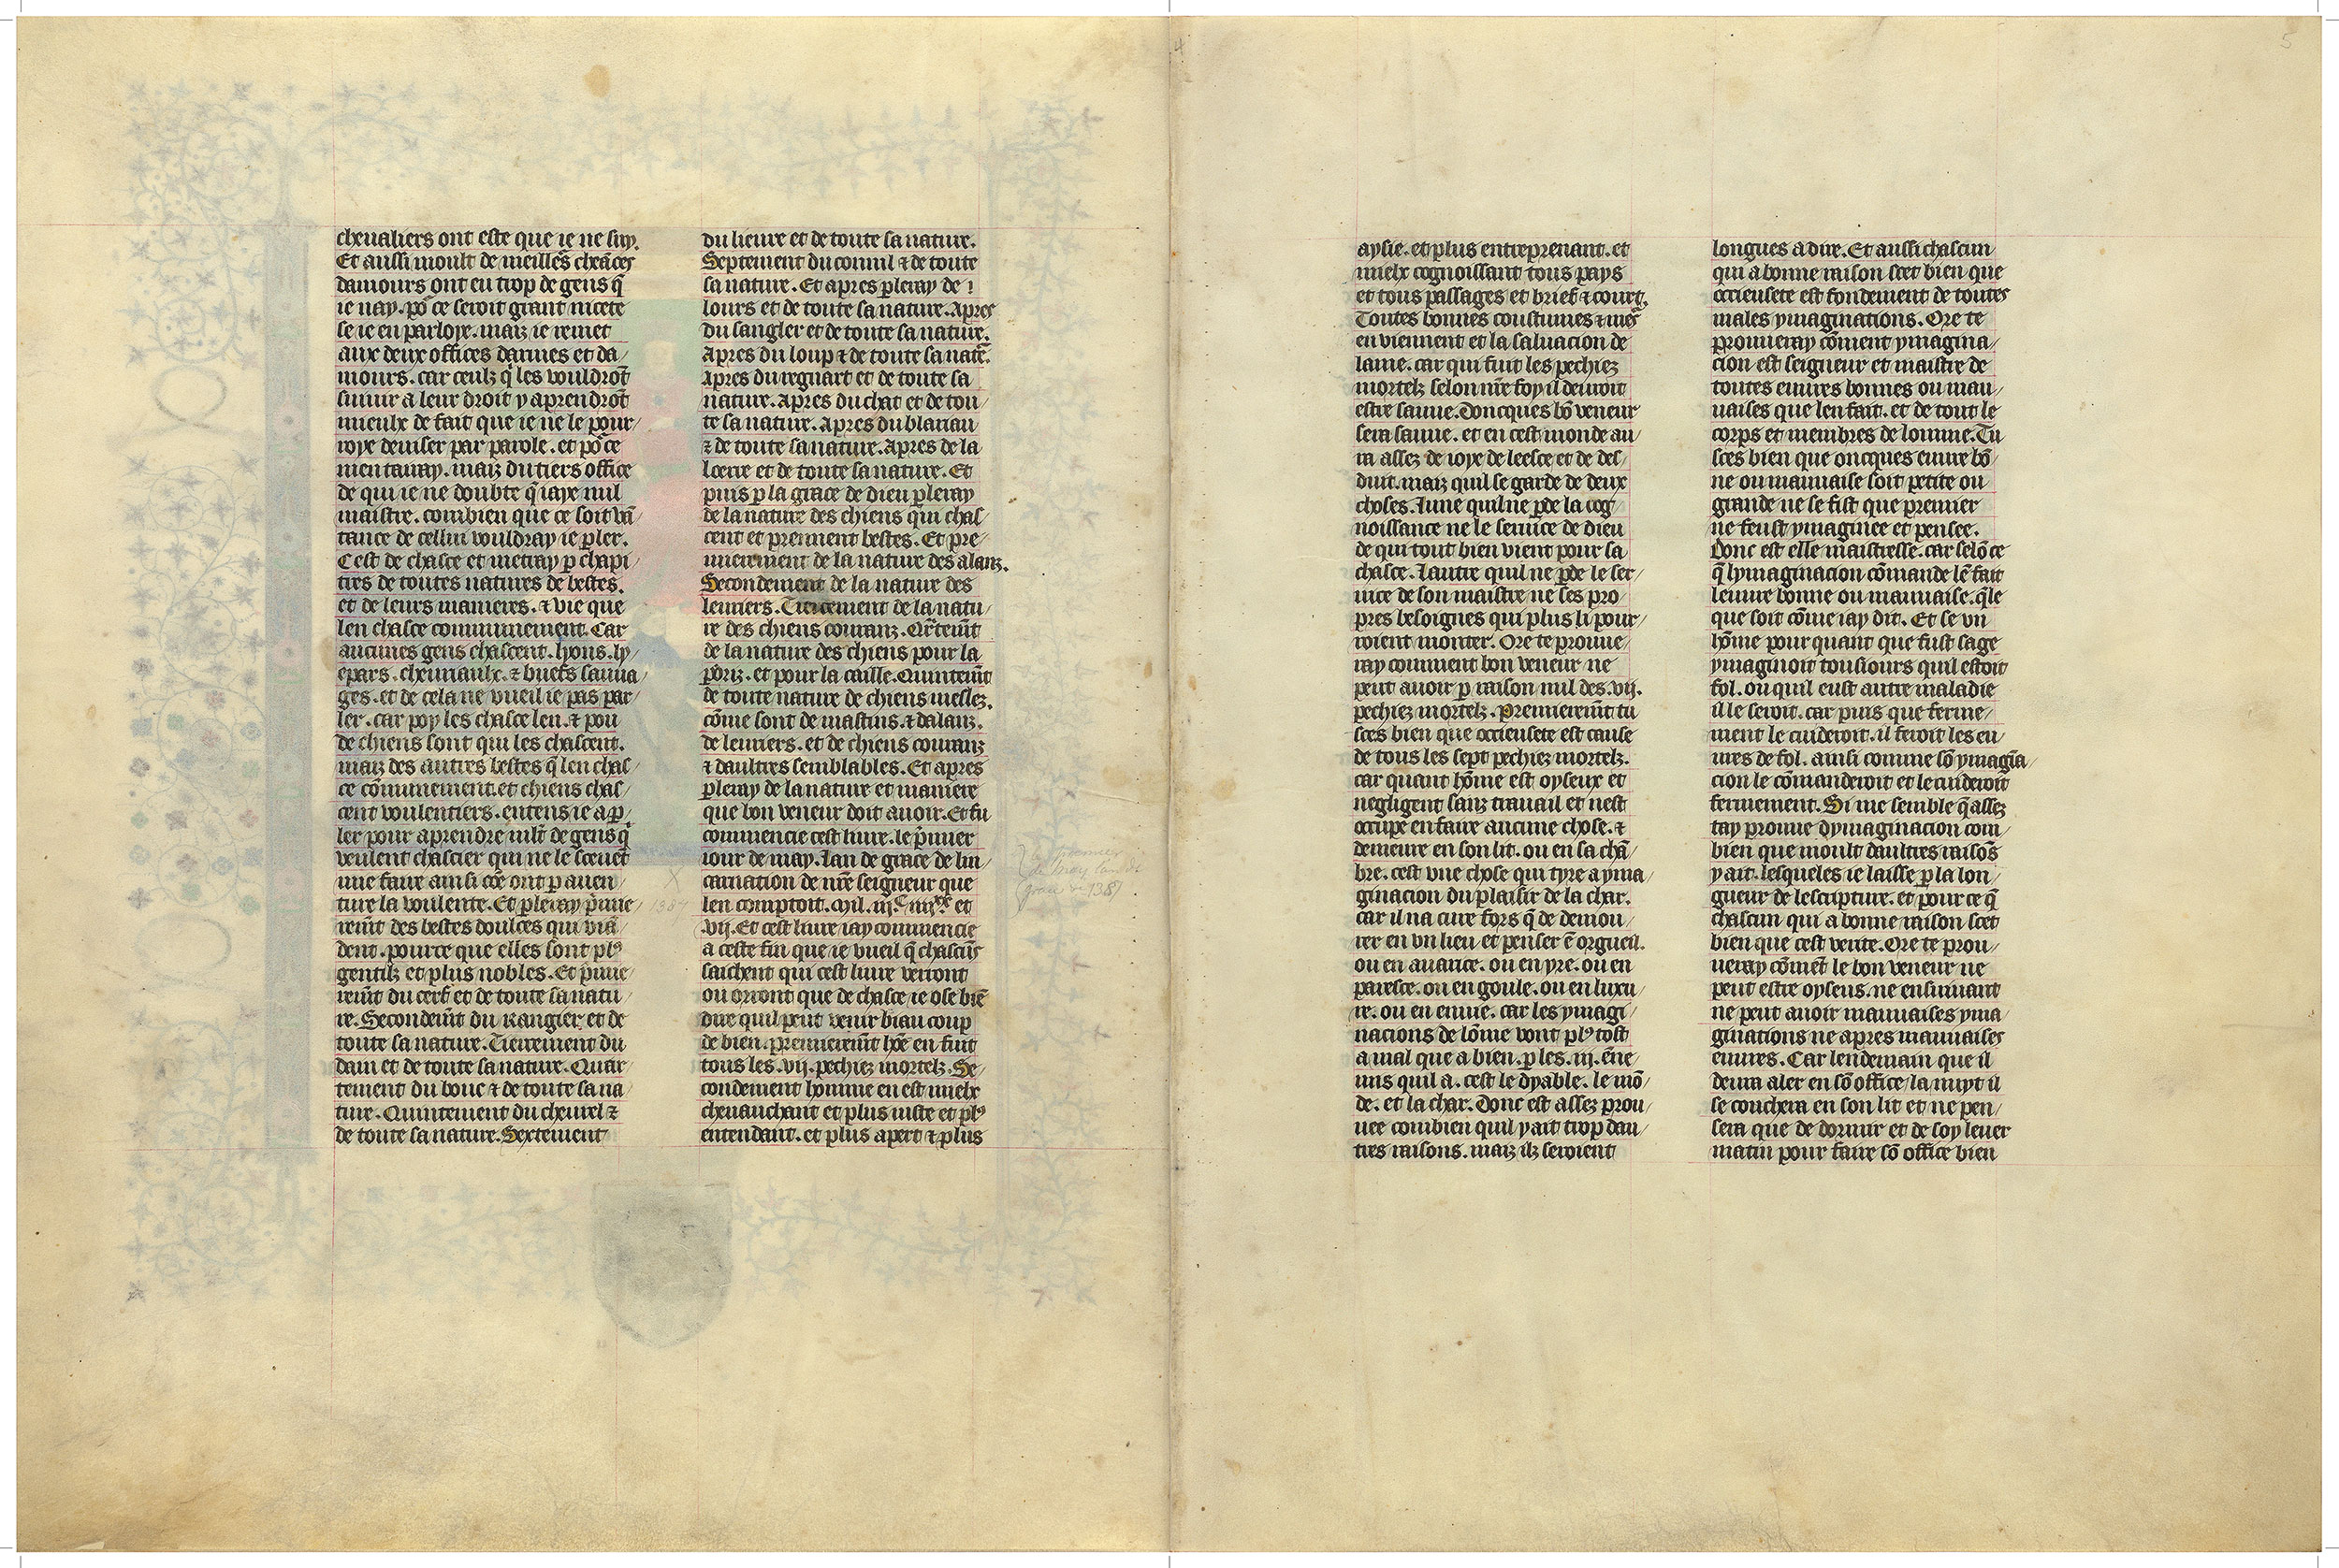 cheualiers ont este que ie ne suy.
Et aussi moult de meille᷒s cheãces
damours ont eu trop de gens q̃
ie nay. po᷒ ce seroit grant nicete
se ie en parloye. maiz ie remet
aux deux offices darmes et da/
mours. car ceulz q̃ les vouldrõt
suiuir a leur droit y aprendrõt
mieulx de fait que ie ne le pour/
roye deuiser par parole. et po᷒ ce
men tairay. maiz du tiers office
de qui ie ne doubte q̃ iaye nul
maistre. combien que ce soit vã/
tance de cellui vouldray ie ꝑler.
Cest de chasce et metray ꝑ chapi/
tres de toutes natures de bestes.
et de leurs manieres. ⁊ vie que
len chasce communement. Car
aucunes gens chascent. lyons. ly/
epars. cheuaulx. ⁊ buefs sauua/
ges. et de cela ne vueil ie pas par/
ler. car poy les chasce len. ⁊ pou
de chiens sont qui les chascent.
maiz des autres bestes q̃ len chas/
ce cõmunement. et chiens chas/
cent voulentiers. entens ie a ꝑ/
ler pour aprendre mlt̃ de gens q̃
veulent chascier qui ne le sceuẽt
mie faire ainsi cõe ont ꝑ auen/
ture la voulente. Et ꝑleray p̃mie/
remt̃ des bestes doulces qui viã/
dent. pource que elles sont plꝰ
gentilz et plus nobles. Et p̃mie/
remt̃ du cerf et de toute sa natu/
re. Secondemt̃ du Rangier et de
toute sa nature. Tiercement du
dain et de toute sa nature. Quar/
tement du bouc ⁊ de toute sa na/
ture. Quintement du cheurel ⁊
de toute sa nature. Sextement
du lieure et de toute sa nature.
Septement du connil ⁊ de toute
sa nature. Et apres ꝑleray de ⁝
lours et de toute sa nature. Apres
du sangler et de toute sa nature.
Apres du loup ⁊ de toute sa natẽ.
Apres du regnart et de toute sa
nature. Apres du chat et de tou/
te sa nature. Apres du blariau
⁊ de toute sa nature. Apres de la
loerre et de toute sa nature. Et
puis ꝑ la grace de dieu ꝑleray
de la nature des chiens qui chas/
cent et prennent bestes. Et pre/
mierement de la nature des alanz.
Secondement de la nature des
leuriers. Tiercement de la natu/
re des chiens couranz. Qr̃temt̃
de la nature des chiens pour la
ꝑdriz. et pour la caille. Quintemt̃
de toute nature de chiens meslez.
cõme sont de mastins. ⁊ dalanz.
de leuriers. et de chiens couranz
⁊ daultres semblables. Et apres
ꝑleray de la nature et maniere
que bon veneur doit auoir. Et fu
commencie cest liure. le p̃mier
iour de may. lan de grace de lin/
carnation de nr̃e seigneur que
len comptoit. Mil. iij.ᶜ iiij.ˣˣ et
.vij. Et cest liure iay commencie
a ceste fin que ie vueil q̃ chascũs
saichent qui cest liure verront
ou orront que de chasce ie ose biẽ
dire quil peut venir biau coup
de bien. premieremt̃ hõe en fuit
tous les .vij. pechiez mortelz. Se/
condement homme en est mielx
cheuauchant et plus iuste et plꝰ
entendant. et plus apert ⁊ plus
1387
5
aysie. et plus entreprenant. et
mielx cognoissant tous pays
et tous passages et brief ⁊ court.
Toutes bonnes coustumes ⁊ me᷒s
en viennent et la saluacion de
lame. car qui fuit les pechiez
mortelz selon nr̃e foy il deuroit
estre sauue. Doncques bõ veneur
sera sauue. et en cest monde au/
ra assez de ioye de leesce et de des/
duit. maiz quil se garde de deux
choses. lune quil ne ꝑde la cog/
noissance ne le seruice de dieu
de qui tout bien vient pour sa
chasce. lautre quil ne ꝑde le ser/
uice de son maistre ne ses pro/
pres besoignes qui plus li pour/
roient monter. Ore te prouue/
ray comment bon veneur ne
peut auoir ꝑ raison nul des .vij.
pechiez mortelz. Premieremt̃ tu
sces bien que occieusete est cause
de tous les sept pechiez mortelz.
car quant hõme est oyseux et
negligent sanz trauail et nest
occupe en faire aucune chose. ⁊
demeure en son lit. ou en sa chã/
bre. cest vne chose qui tyre a yma/
ginacion du plaisir de la char.
car il na cure fors q̃ de demou/
rer en vn lieu et penser ẽ orgueil.
ou en auarice. ou en yre. ou en
paresce. ou en goule. ou en luxu/
re. ou en enuie. car les ymagi/
nacions de lõme vont plꝰ tost
a mal que a bien. ꝑ les .iij. ẽne/
mis quil a. cest le dyable. le mõ/
de. et la char. Donc est assez prou/
uee combien quil y ait trop dau/
tres raisons. maiz ilz seroient
longues a dire. Et aussi chascun
qui a bonne raison scet bien que
occieusete est fondement de toutes
males ymaginations. Ore te
prouueray cõment ymagina/
cion est seigneur et maistre de
toutes euures bonnes ou mau/
uaises que len fait. et de tout le
corps et membres de lomme. Tu
sces bien que oncques euure bõ/
ne ou mauuaise soit petite ou
grande ne se fist que premier
ne feust ymaginee et pensee.
Donc est elle maistresse. car selõ ce
q̃ lymaginacion cõmande lẽ fait
leuure bonne ou mauuaise. q̃le
que soit cõme iay dit. Et se vn
hõme pour quant que fust sage
ymaginoit tousiours quil estoit
fol. ou quil eust autre maladie
il le seroit. car puis que ferme/
ment le cuideroit. il feroit les eu/
ures de fol. ainsi comme sõ ymagia/
cion le cõmanderoit et le cuideroit
fermement. Si me semble q̃ assez
tay prouue dymaginacion com/
bien que moult daultres raisõs
y ait. lesqueles ie laisse ꝑ la lon/
gueur de lescripture. et pour ce q̃
chascun qui a bonne raison scet
bien que cest verite. Ore te prou/
ueray cõmẽt le bon veneur ne
peut estre oyseus. ne ensuiuant
ne peut auoir mauuaises yma/
ginations ne apres mauuaises
euures. Car lendemain que il
deura aler en sõ office. la nuyt il
se couchera en son lit et ne pen/
sera que de dormir et de soy leuer
matin pour faire sõ office bien